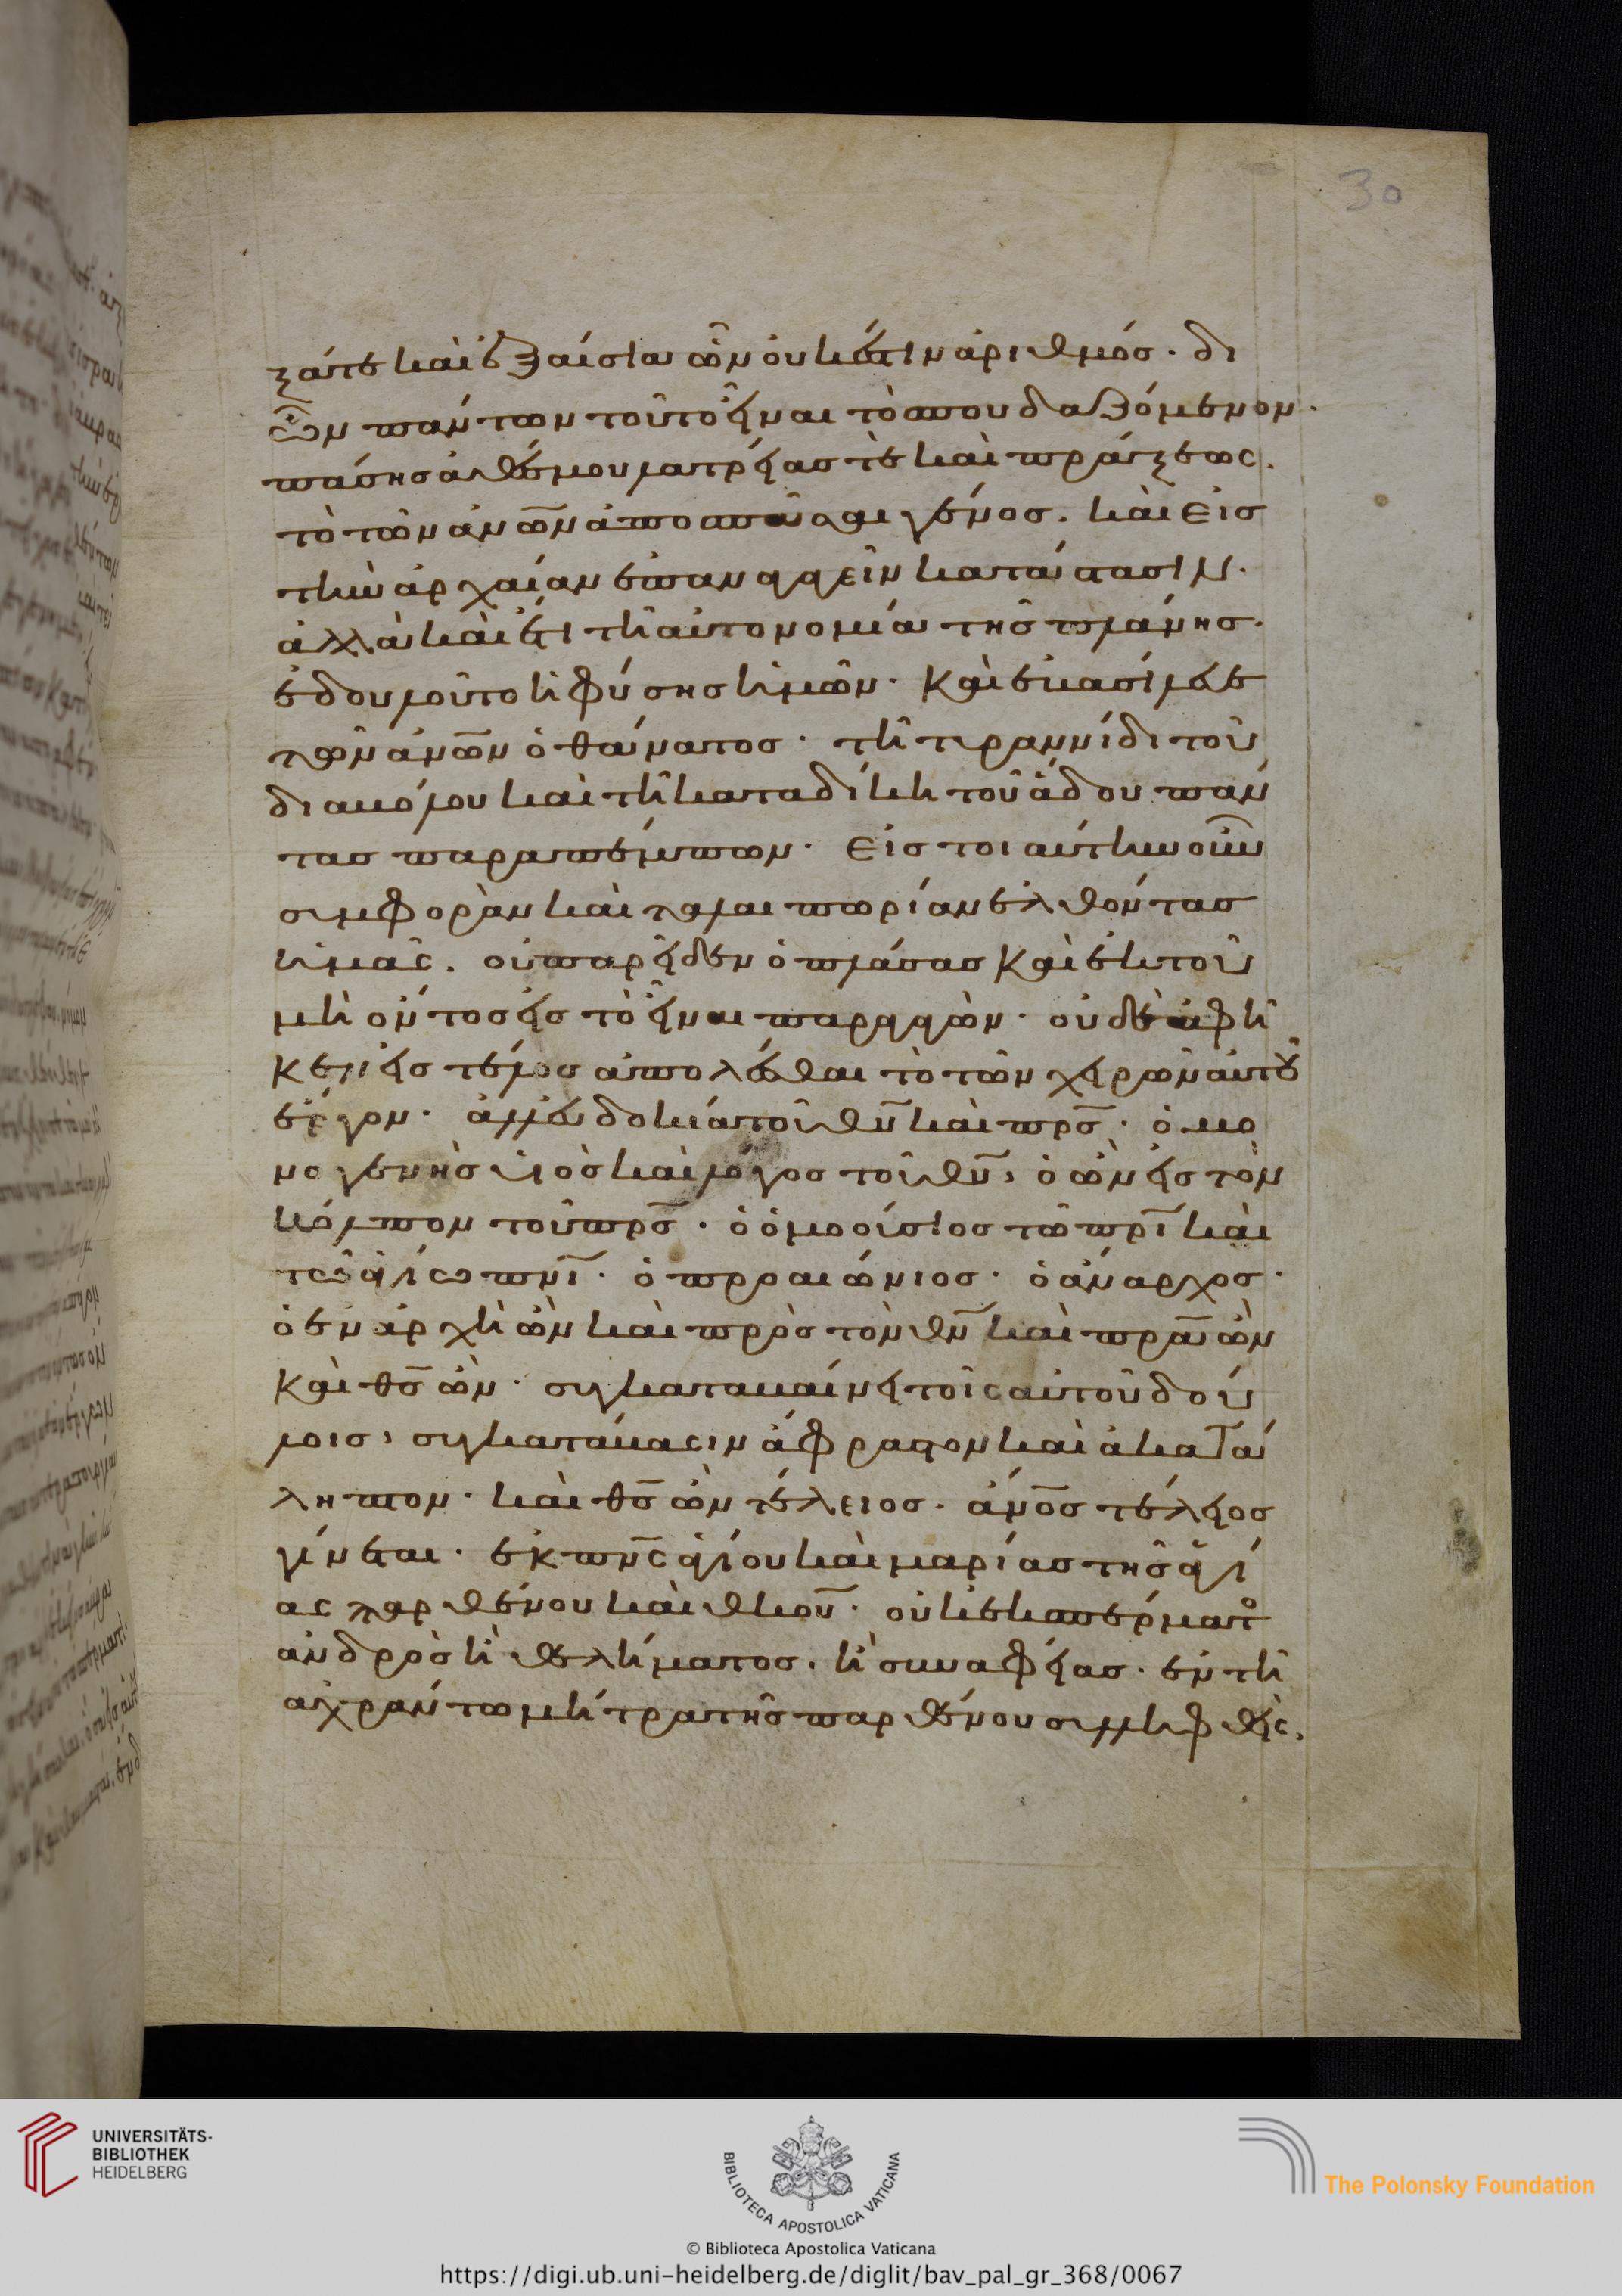 30
ξάτε καὶ ἐξαίσια ὧν οὐκ ἔστιν ἀριθμός. δι
ὧν πάντων τοῦτο ἦν αι τὸ σπουδαζόμενον.
πάσης ἀθέσμου λατρείας τὲ καὶ πράξεως.
τὸ τῶν ἀνων ἀποσπᾶσαι γένος. καὶ εἰς
τὴν ἀρχαίαν ἐπαναγαγεῖν κατάστασιν.
ἀλλὰ καὶ ἔτι τῆ αὐτονομία τῆς πλάνης.
ἐδουλοῦτο ἡ φύσης ἡμῶν. καὶ ἐβασίλευε
τῶν ἀνων ὁ θάνατος. τῆ τυραννίδι τοῦ
διαβόλου καὶ τῆ καταδίκη τοῦ ἅδου πάν
τας παραπέμπων. εἰς τοιαύτην οὖν
συμφορὰν καὶ ταλαιπωρίαν ἐλθόντας
ἡμᾶς. οὐ παρεῖδεν ὁ πλάσας καὶ ἐκ τοῦ
μὴ ὄντος εἰς τὸ εἶναι παραγαγών. οὐδὲ ἀφῆ
κεν εἰς τέλος ἀπολέσθαι τὸ τῶν χειρῶν αὐτοῦ
ἔργον. ἀλλ' εὐδοκία τοῦ θυ καὶ πρς. ὁ μο
νογενὴς υἱὸς καὶ λόγος τοῦ θυ, ὁ ὢν εἰς τὸν
κόλπον τοῦ πρς. ὁ ὁμοούσιος τῶ πρι καὶ
τῶ ἁγίω πνι. ὁ προαιώνιος. ὁ ἄναρχος.
ὁ ἐν ἀρχῆ ὢν καὶ πρὸς τὸν θν καὶ πρα ὢν
καὶ θς ὤν. συγκαταβαίνει τοῖς αὐτοῦ δού
λοις, συγκατάβασιν ἄφραστον καὶ ἀκατά
ληπτον. καὶ θς ὢν τέλειος. ἄνος τέλειος
γίνεται. ἐκ πνς ἁγίου καὶ μαρίας τῆς ἁγί
ας παρθένου καὶ θκου. οὐκ ἐκ σπέρματος
ἀνδρὸς ἢ θελήματος. ἢ συναφείας. ἐν τῆ
ἀχράντω μήτρα τῆς παρθένου συλληφθείς.
UNIVERSITÄTS-
BIBLIOTHEK
HEIDELBERG
BIBLIOTECA APOSTOLICA VATICANA
The Polonsky Foundation
© Biblioteca Apostolica Vaticana
https://digi.ub.uni-heidelberg.de/diglit/bav_pal_gr_368/0067